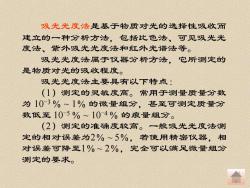 吸光光度法是基于物质对光的选择性吸收而
建立的一种分析方法，包括比色法、可见吸光光
度法、紫外吸光光度法和红外光谱法等。
吸光光度法属于仪器分析方法，它所测定的
是物质对光的吸收程度。
吸光光度法主要具有以下特点：
(1) 测定的灵敏度高。常用于测量质量分数
为 10⁻³ % ~ 1% 的微量组分，甚至可测定质量分
数低至 10⁻⁵ % ~ 10⁻⁴ % 的痕量组分。
(2) 测定的准确度较高。一般吸光光度法测
定的相对误差为2% ~ 5%，若使用精密仪器，相
对误差可降至1% ~ 2%，完全可以满足微量组分
测定的要求。